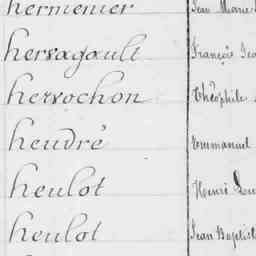 hermenier Jean Marie
hervagault François
hervochon Théophile
heudré Emmanuel
heulot Henri
heulot Jean Baptist